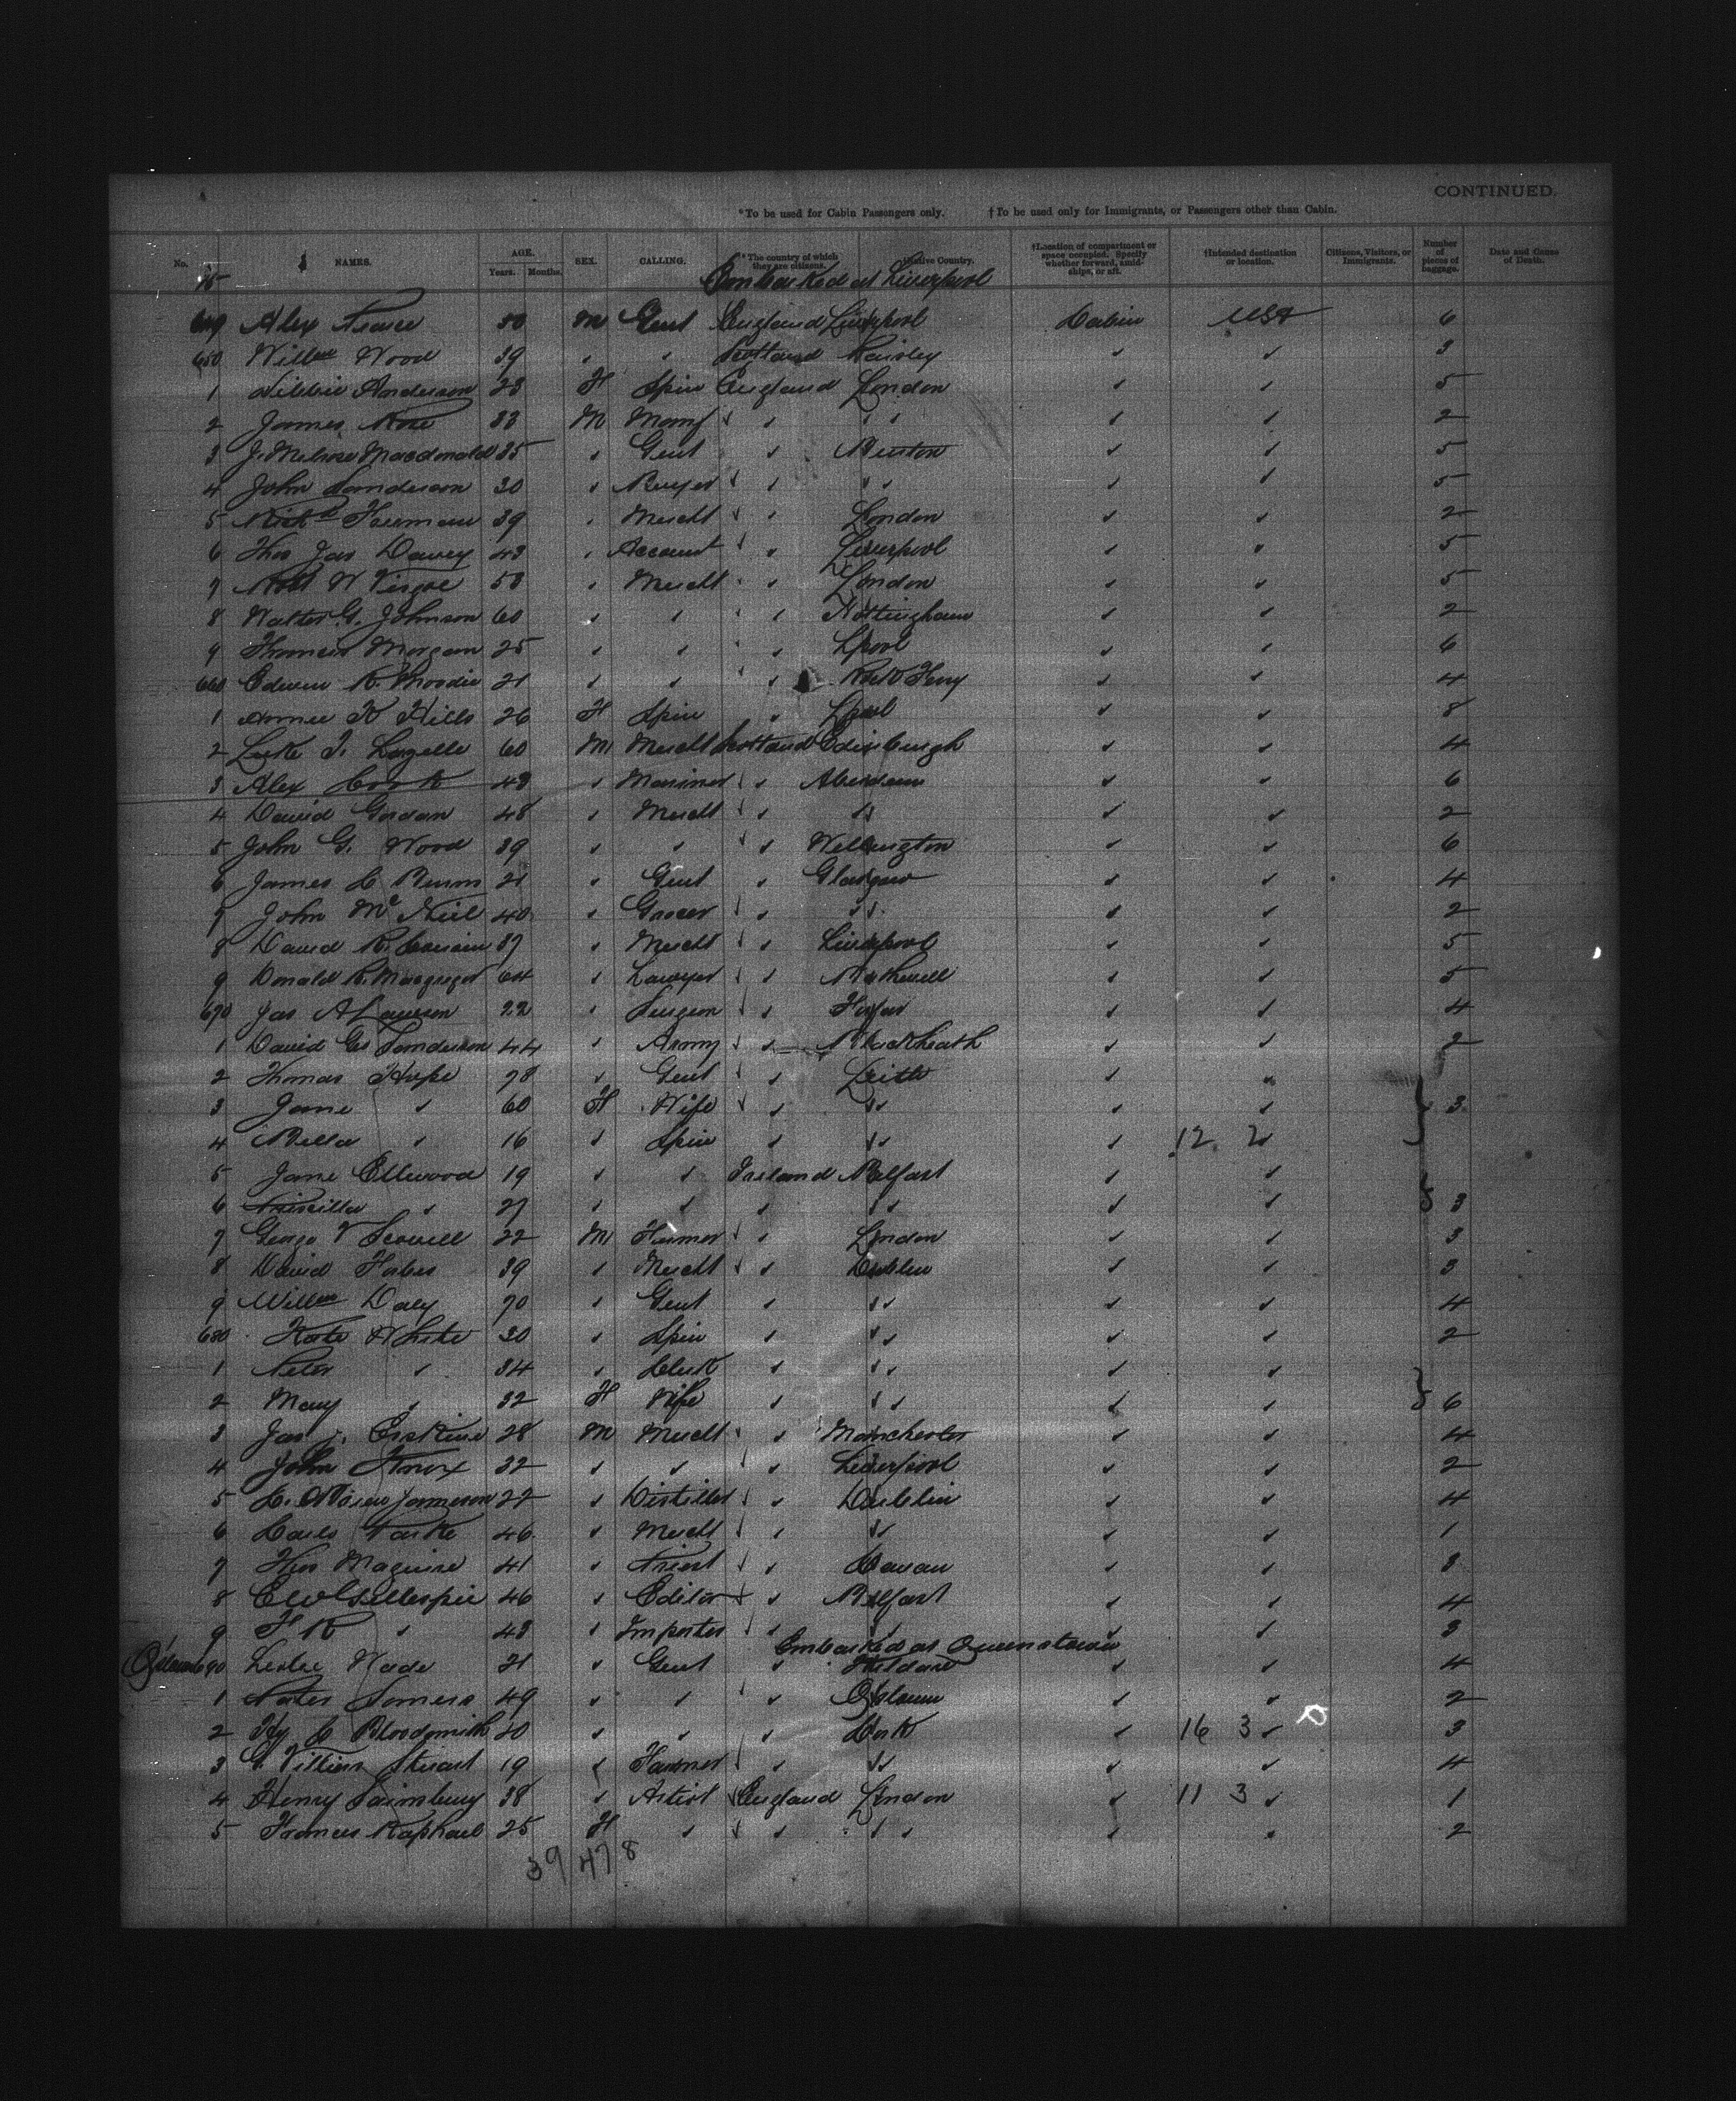 CONTINUED.
*To be used for Cabin Passengers only. †To be used only for Immigrants, or Passengers other than Cabin.
No. NAMES. AGE. Years. Months. SEX. CALLING. *The country of which they are citizens. Native Country. †Location of compartment or space occupied. Specify whether forward, amidships, or aft. †Intended destination or location. Citizens, Visitors, or Immigrants. Number of pieces of baggage. Date and Cause of Death.
Embarked at Liverpool
649 Alex 30 M Gent England Liverpool Cabin USA 6
650 Willm Wood 39 " " Scotland Paisley " " 3
1 Libbie Anderson 23 F Spin England London " " 5
2 James 33 M " " " " 2
3 J. Melrose Macdonald 35 " Gent " " " 5
4 John Sanderson 30 " Buyer " " " " 5
5 39 " Mercht " London " " 2
6 Thos Jas Davey 43 " Account " Liverpool " " 5
7 Robt W 53 " Mercht " London " " 5
8 Walter G. Johnson 60 " " " Nottingham " " 2
9 Thomas Morgan 25 " " " Lpool " " 6
660 Edwin R. 21 " " " Rock Ferry " " 4
1 Annie K Hills 26 F Spin " Lpool " " 8
2 60 M Mercht Scotland Edinburgh " " 4
3 Alex Cook 43 " Mariner " Aberdeen " " 6
4 David Gordon 48 " Mercht " " " " 2
5 John G. Wood 39 " " " Wellington " " 6
6 James C Burns 21 " Gent " Glasgow " " 4
7 John McNeil 40 " Grocer " " " " 2
8 David R. 37 " Mercht " Liverpool " " 5
9 Donald R. Macgregor 64 " Lawyer " " " 5
670 Jas A Lawson 22 " Surgeon " Forfar " " 4
1 David Geo Sanderson 44 " Army " Blackheath " " 2
2 Thomas Hope 78 " Gent " Leith " "
3 Jane " 60 F Wife " " " " 3
4 Bella " 16 " Spin " " " 12 2 "
5 Jane Ellwood 19 " " Ireland Belfast " "
6 Priscilla " 27 " " " " " " 3
7 George V Scovell 22 M Farmer " London " " 3
8 David Forbes 39 " Mercht " Dublin " " 3
9 Willm Daly 70 " Gent " " " " 4
680 Kate White 30 " Spin " " " " 2
1 Peter " 34 " Clerk " " " "
2 Mary " 32 F Wife " " " " 6
3 Jas J. Erskine 28 M Mercht " Manchester " " 4
4 John Knox 32 " " " Liverpool " " 2
5 Jameson 22 " Distiller " Dublin " " 4
6 46 " Mercht " " " " 1
7 Thos Maguire 41 " Priest " Cavan " " 3
8 E W Gillespie 46 " Editor " Belfast " " 4
9 F R " 43 " Importer " " " " 3
Embarked at Queenstown
690 Leslie Wade 21 " Gent " Kildare " " 4
1 Somers 49 " " " " " 2
2 Hy C Bloodsmith 30 " " " Cork " 16 3 " 3
3 G. Villiers Stuart 19 " Farmer " " " " 4
4 Henry Sainsbury 38 " Artist England London " 11 3 " 1
5 Frances Raphael 25 F " " " " " 2
39 47 8